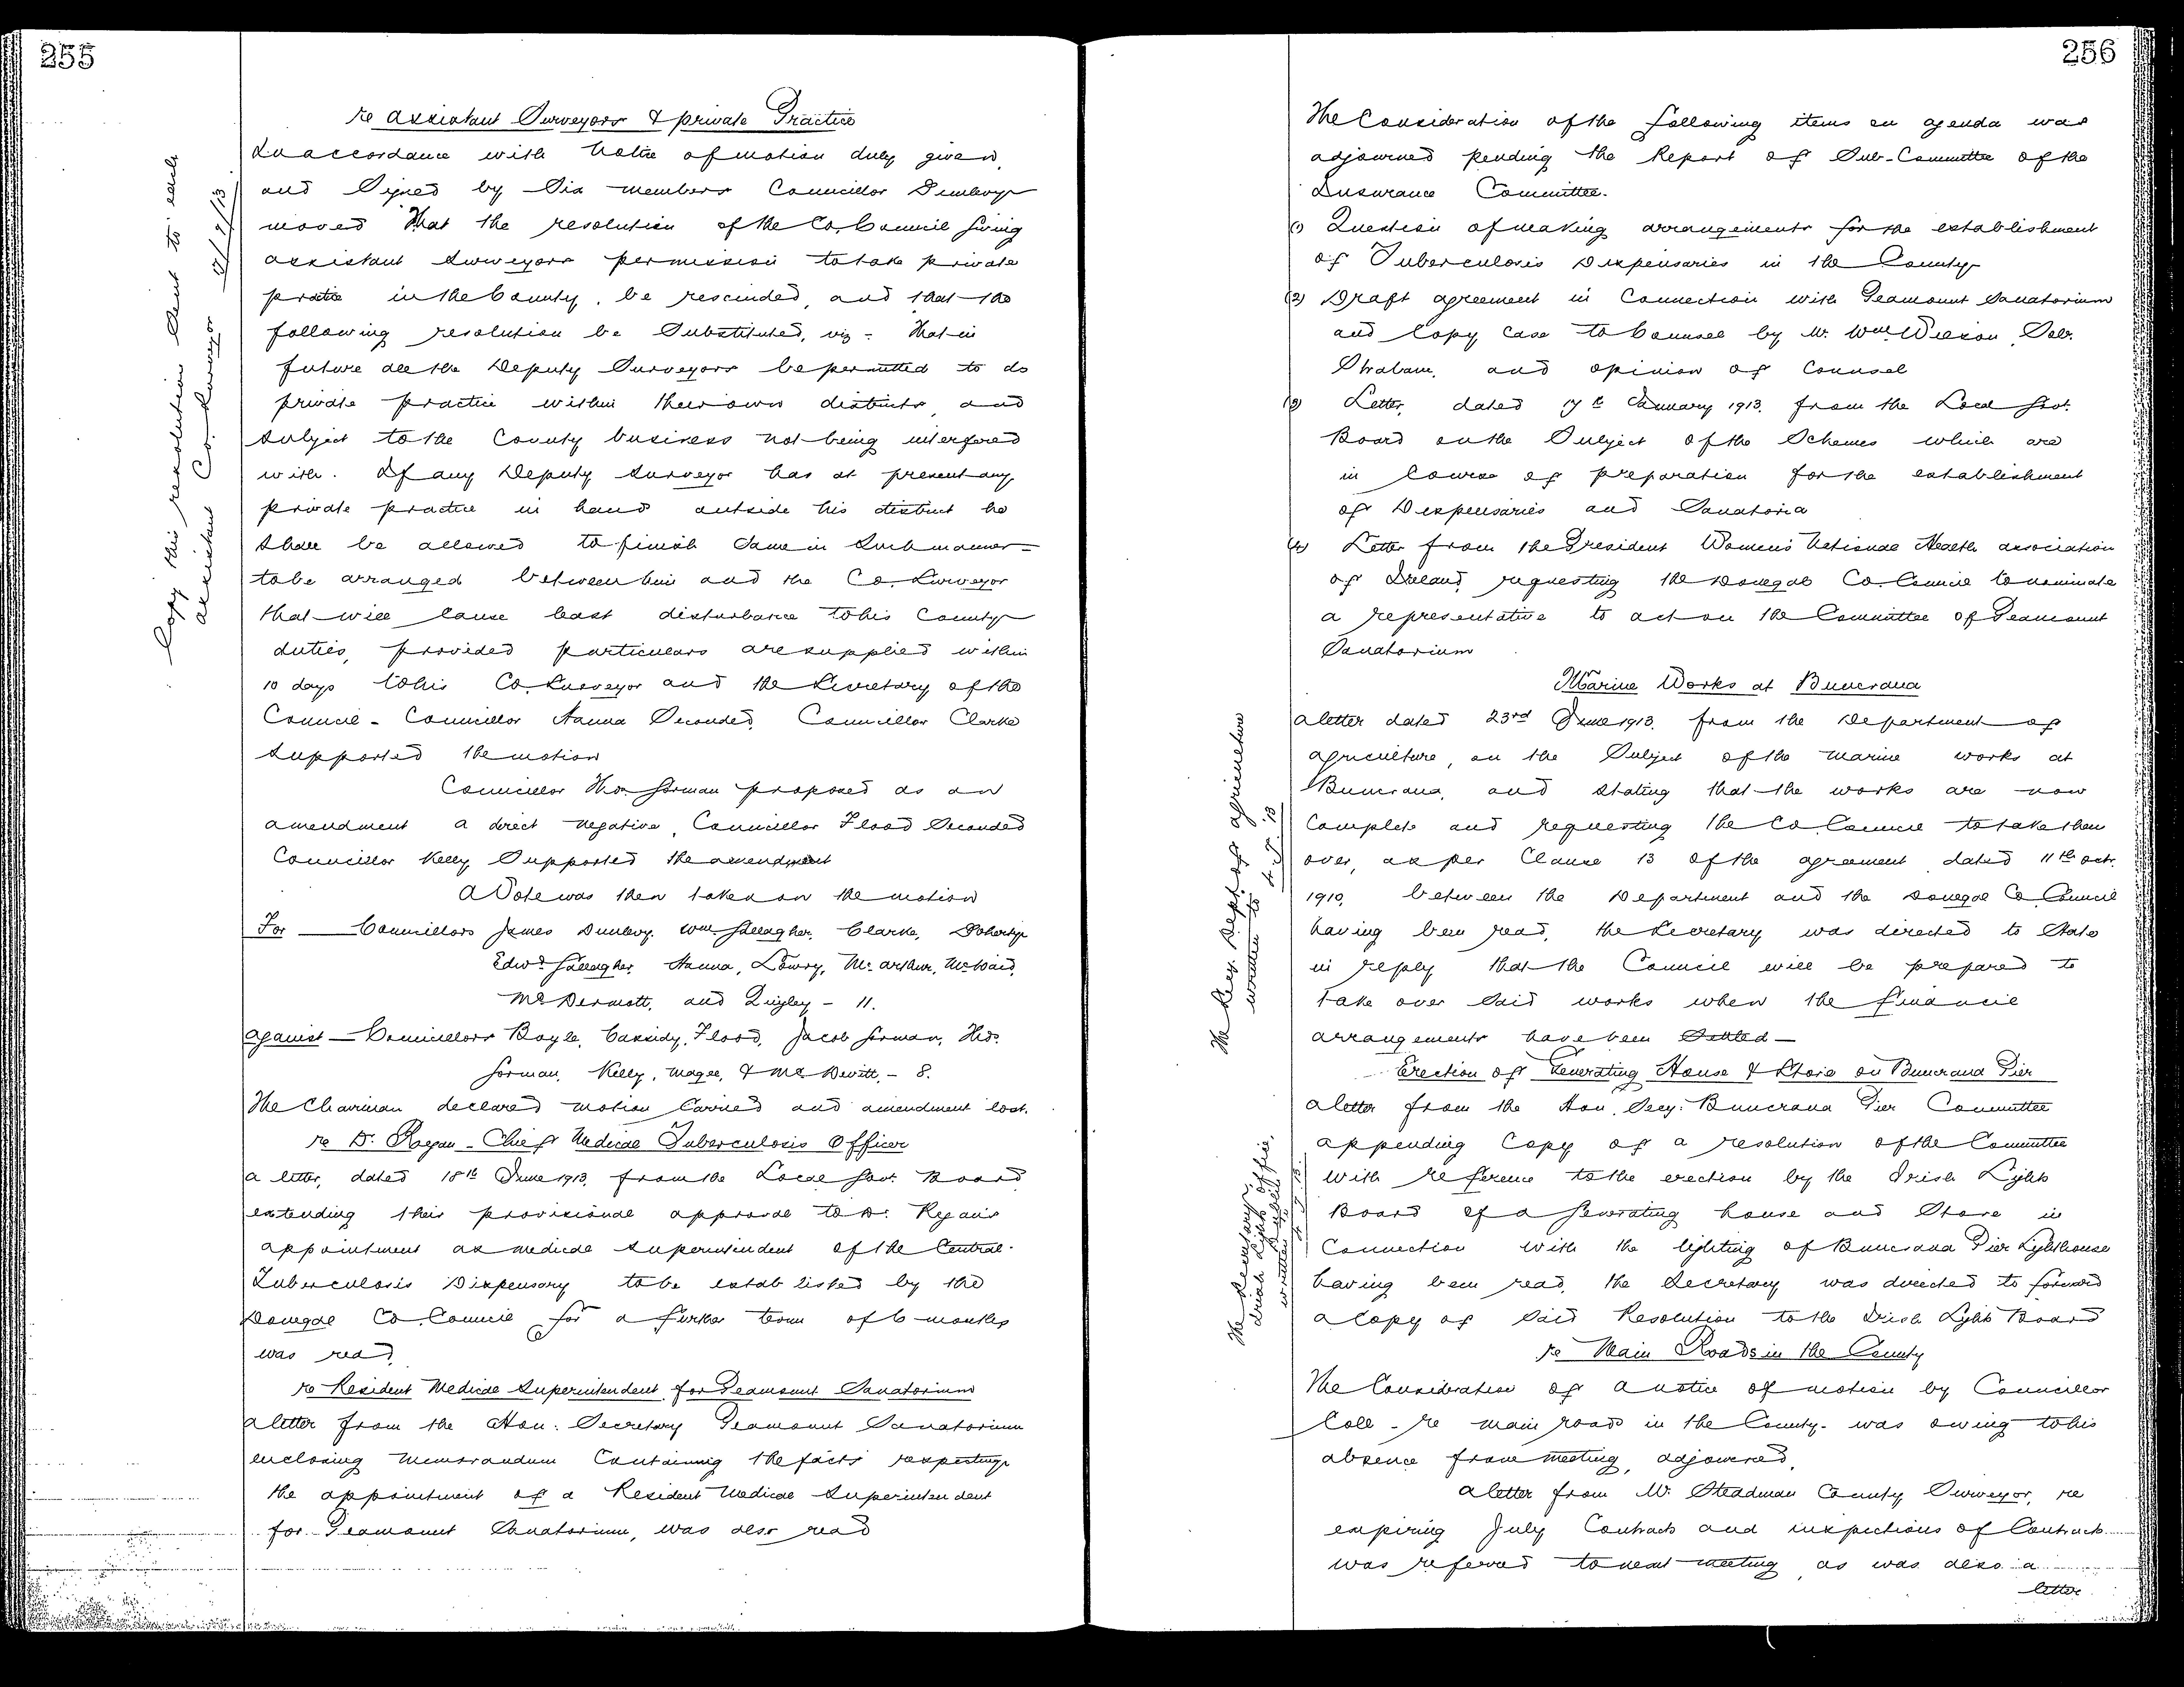 255
re Assistant Surveyors & private Practice
In accordance with Notice of motion duly given,
and Signed by Six members Councillor Dunlevy
moved That the resolution of the Co. Council giving
assistant Surveyors permission to take private
practice in the County, be rescinded, and that the
following resolution be Substituted, viz - That in
future all the Deputy Surveyors be permitted to do
private practice within their own districts, and
subject to the County business not being interfered
with. If any Deputy Surveyor has at present any
private practice in hand outside his district he
shall be allowed to finish same in such manner
to be arranged between him and the Co. Surveyor
that will cause least disturbance to his County
duties, provided particulars are supplied within
10 days to his Co. Surveyor and the Secretary of the
Council - Councillor Hanna Seconded, Councillor Clarke
supported the motion
Councillor Thos. Gorman proposed as an
amendment a direct negative, Councillor Flood Seconded
Councillor Kelly Supported the amendment
A Vote was then taken on the motion
For — Councillors James Dunlevy, Wm. Gallagher, Clarke, Doherty
Edwd. Gallagher, Hanna, Lowry, McArthur, McWaid,
McDermott, and Quigley - 11.
Against — Councillors Boyle, Cassidy, Flood, Jacob Gorman, Thos.
Gorman, Kelly, Magee, & McDevitt, - 8.
The Chairman declared motion Carried and amendment lost.
re Dr. Regan - Chief Medical Tuberculosis Officer
A letter, dated 18th June 1913, from the Local Govt. Board
extending their provisional approval to Dr. Regan's
appointment as medical Superintendent of the Central
Tuberculosis Dispensary to be established by the
Donegal Co. Council for a further term of 6 months
was read,
re Resident Medical Superintendent for Peamount Sanatorium
A letter from the Hon: Secretary Peamount Sanatorium
enclosing Memorandum Containing the facts respecting
the appointment of a Resident Medical Superintendent
for Peamount Sanatorium, was also read
Copy this resolution sent to each
assistant Co. Surveyor
256
The Consideration of the following items on agenda was
adjourned pending the Report of Sub-Committee of the
Insurance Committee.
(1) Question of making arrangements for the establishment
of Tuberculosis Dispensaries in the County
(2) Draft agreement in Connection with Peamount Sanatorium
and Copy Case to Counsel by Mr. Wm. Wilson, Solr.
Strabane, and opinion of Counsel
(3) Letter, dated 17th January 1913, from the Local Govt.
Board on the Subject of the Schemes which are
in Course of preparation for the establishment
of Dispensaries and Sanatoria
(4) Letter from the President Women's National Health association
of Ireland, requesting the Donegal Co. Council to nominate
a representative to act on the Committee of Peamount
Sanatorium
Marine Works at Buncrana
A letter dated 23rd June 1913, from the Department of
agriculture, on the Subject of the marine works at
Buncrana, and stating that the works are now
Complete and requesting the Co. Council to take them
over, as per Clause 13 of the agreement dated 11th Octr.
1910, between the Department and the Donegal Co. Council
having been read, the Secretary was directed to State
in reply that the Council will be prepared to
take over said works when the financial
arrangements have been Settled —
The Secy. Dept. of Agriculture
written to 4.7.13
Erection of Generating House & Store on Buncrana Pier
A letter from the Hon. Secy: Buncrana Pier Committee
appending Copy of a resolution of the Committee
with reference to the erection by the Irish Lights
Board of a Generating house and Store in
Connection with the lighting of Buncrana Pier Lighthouse
having been read, the Secretary was directed to forward
a Copy of said Resolution to the Irish Lights Board
The Secretary,
Irish Lights Office,
Dublin
written to 4.7.13
re Main Roads in the County
The Consideration of a notice of motion by Councillor
Coll - re main roads in the County - was owing to his
absence from meeting, adjourned,
A letter from Mr. Steadman County Surveyor, re
expiring July Contracts and inspections of Contracts
was referred to next meeting, as was also a
letter